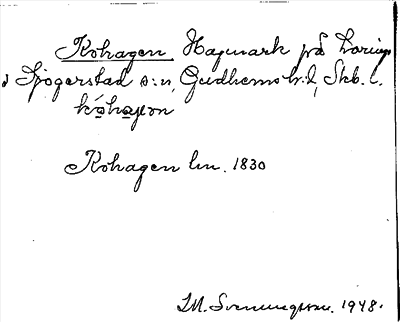 Kohagen Hagmark på Loringa
i Sjogerstad s:n, Gudhems hd, Skb. l.
kóhaɡən
Kohagen lm. 1830
I.M. Svenungsson. 1948.